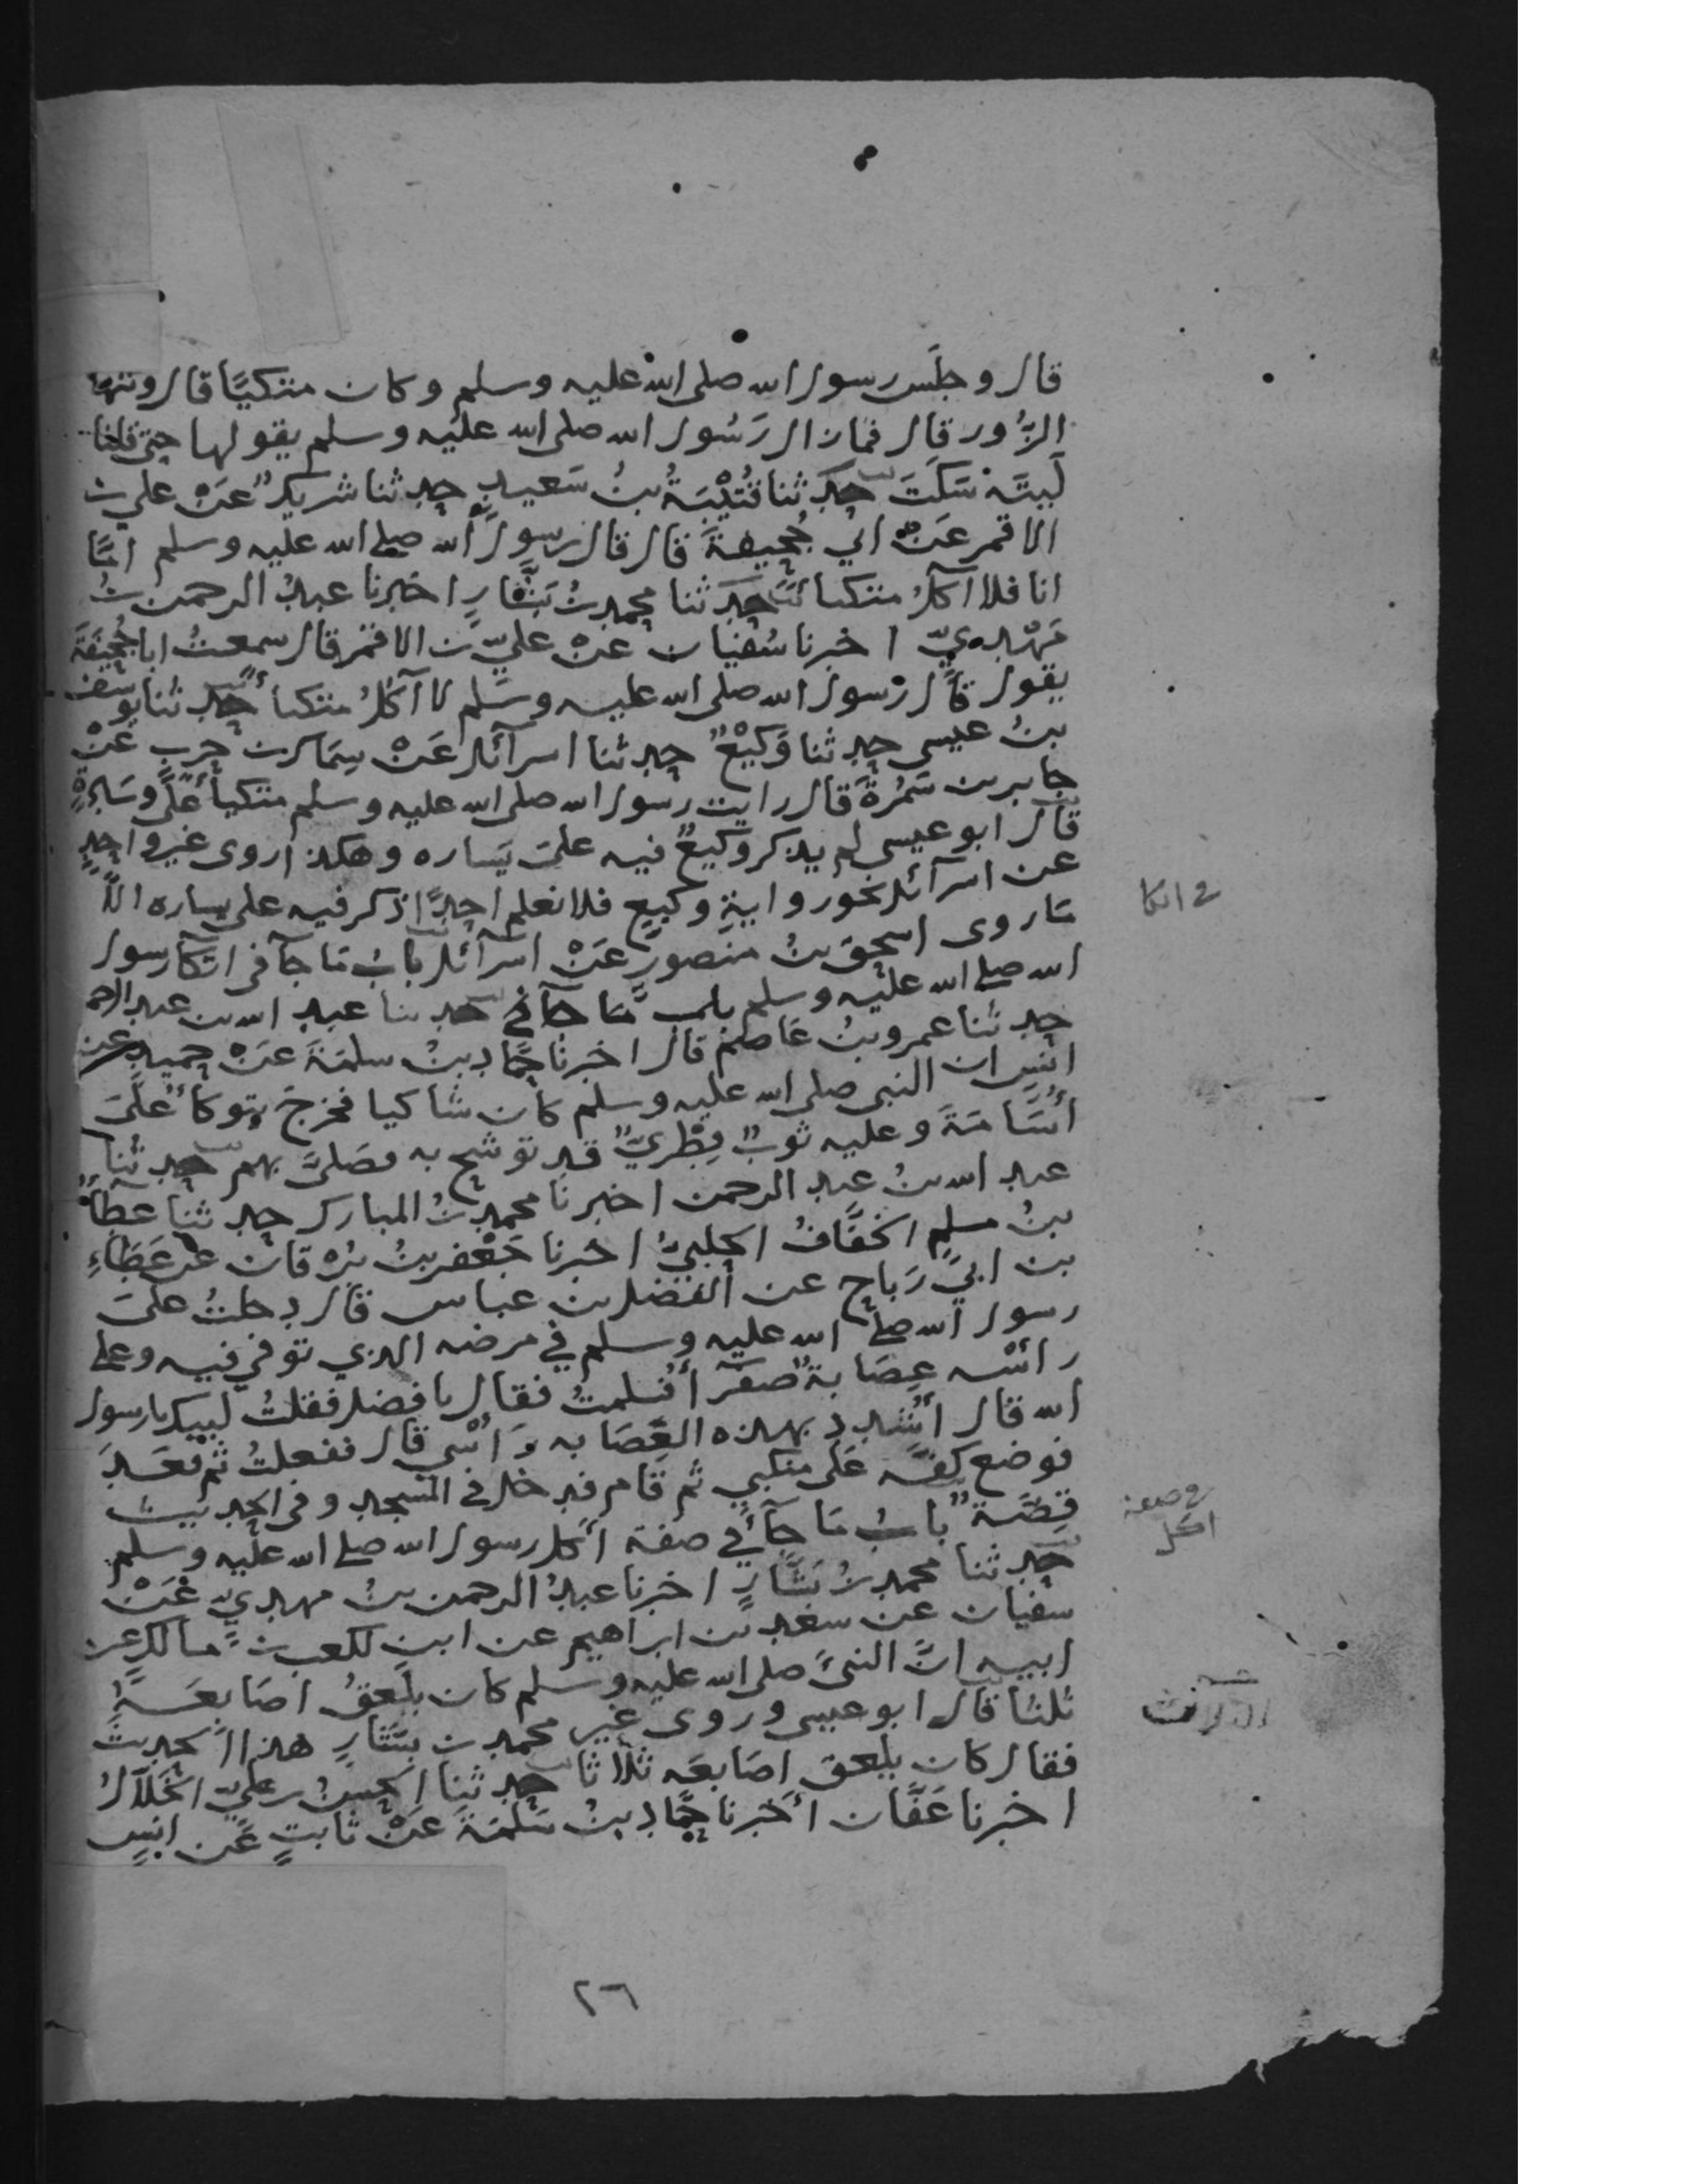 قال وجلس رسول الله صلى الله عليه وسلم وكان متكيًا قال وشهادة
الزُّور قال فما زال رَسُول الله صلى الله عليه وسلم يقولها حتى قلنا
لَيتَه سَكَتَ حدثنا قُتَيْبَةُ بنُ سَعيدٍ حدثنا شريكٌ عَنْ علي بن
الاقمر عَنْ ابي جُحيفةَ قال قال رسول الله صلى الله عليه وسلم امّا
انا فلا آكلُ متكيا حدثنا محمد بنُ بَشّارٍ اخبرنا عبدُ الرحمن بنُ
مَهْديّ اخبرنا سُفيان عنْ عليّ بن الاقمر قال سمعتُ ابا جُحَيفَةَ
يقول قال رسول الله صلى الله عليه وسلم لا آكلُ متكيا حدثنا يوسف
بنُ عيسى حدثنا وَكيْعٌ حدثنا اسرآئل عَنْ سِمَاك بن حربٍ عَنْ
جابر بن سَمُرةَ قال رايت رسول الله صلى الله عليه وسلم متكيًا عَلَى وسَادةٍ
قال ابو عيسى لم يذكر وكيعٌ فيه على يَساره وهكذا روى غير واحدٍ
عن اسرآئل نحو روايةِ وكيعٍ فلا نعلم احدًا ذكر فيه على يساره الّا
مَا روى اسحق بنُ منصورٍ عَنْ اسرآئل بابُ مَا جآ فى اتكآ رسول
الله صلى الله عليه وسلم باب مَّا جآ في حدثنا عبد الله بن عبد الرحمن
حدثنا عمرو بنُ عَاصمٍ قال اخبرنا حَمّاد بنُ سلمَةَ عَنْ حميدٍ عن
انسٍ ان النبى صلى الله عليه وسلم كان شاكيا فخرجَ يتوكأُ علَى
أُسَامَةَ وعليه ثوبٌ قِطْريٌّ قد توشح به فصَلىَّ بهم حدثنا
عبد الله بن عبد الرحمن اخبرنا محمد بنُ المبارك حدثنا عطآءُ
بنُ مسلمٍ الخفَّافُ الحلبيُّ اخبرنا جَعْفر بنُ بُرْقان عن عَطَاءِ
بن ابي رَباحٍ عن الفَضل بن عباس قال دخلتُ علىَ
رسول الله صلى الله عليه وسلم في مرضه الذي توفي فيه وعلى
رأسه عِصَابةٌ صفرآ فسلمتُ فقال يا فضل فقلتُ لبيك يا رسول
الله قال اشْدد بهذه العِصَابه رَأسي قال ففعلتُ ثم قعَدَ
فوضع كفَّه عَلَى منكبي ثم قام فدخل في المسجد وفى الحديث
قِصَّةٌ بابُ مَا جآ في صفة أكل رسول الله صلى الله عليه وسلم
حدثنا محمد بنُ بَشَّارٍ اخبرنا عبدُ الرحمن بنُ مهديّ عَنْ
سفيان عن سَعْد بن ابراهيم عن ابن لكعب بن مالك عن
ابيه انّ النبىَّ صلى الله عليه وسلم كان يلعَقُ اصَابعَهُ
ثلثا قال ابو عيسى وروى غير محمد بن بشّارٍ هذا الحديث
فقال كان يلعق اصَابعَه ثلاثا حدثنا الحسنُ بن عليّ الخلاّلُ
اخبرنا عَفّان اخبرنا حَمّاد بنُ سَلَمَةَ عَنْ ثابتٍ عَن انسٍ
في اتكا
في صفة
اكل
٢٦